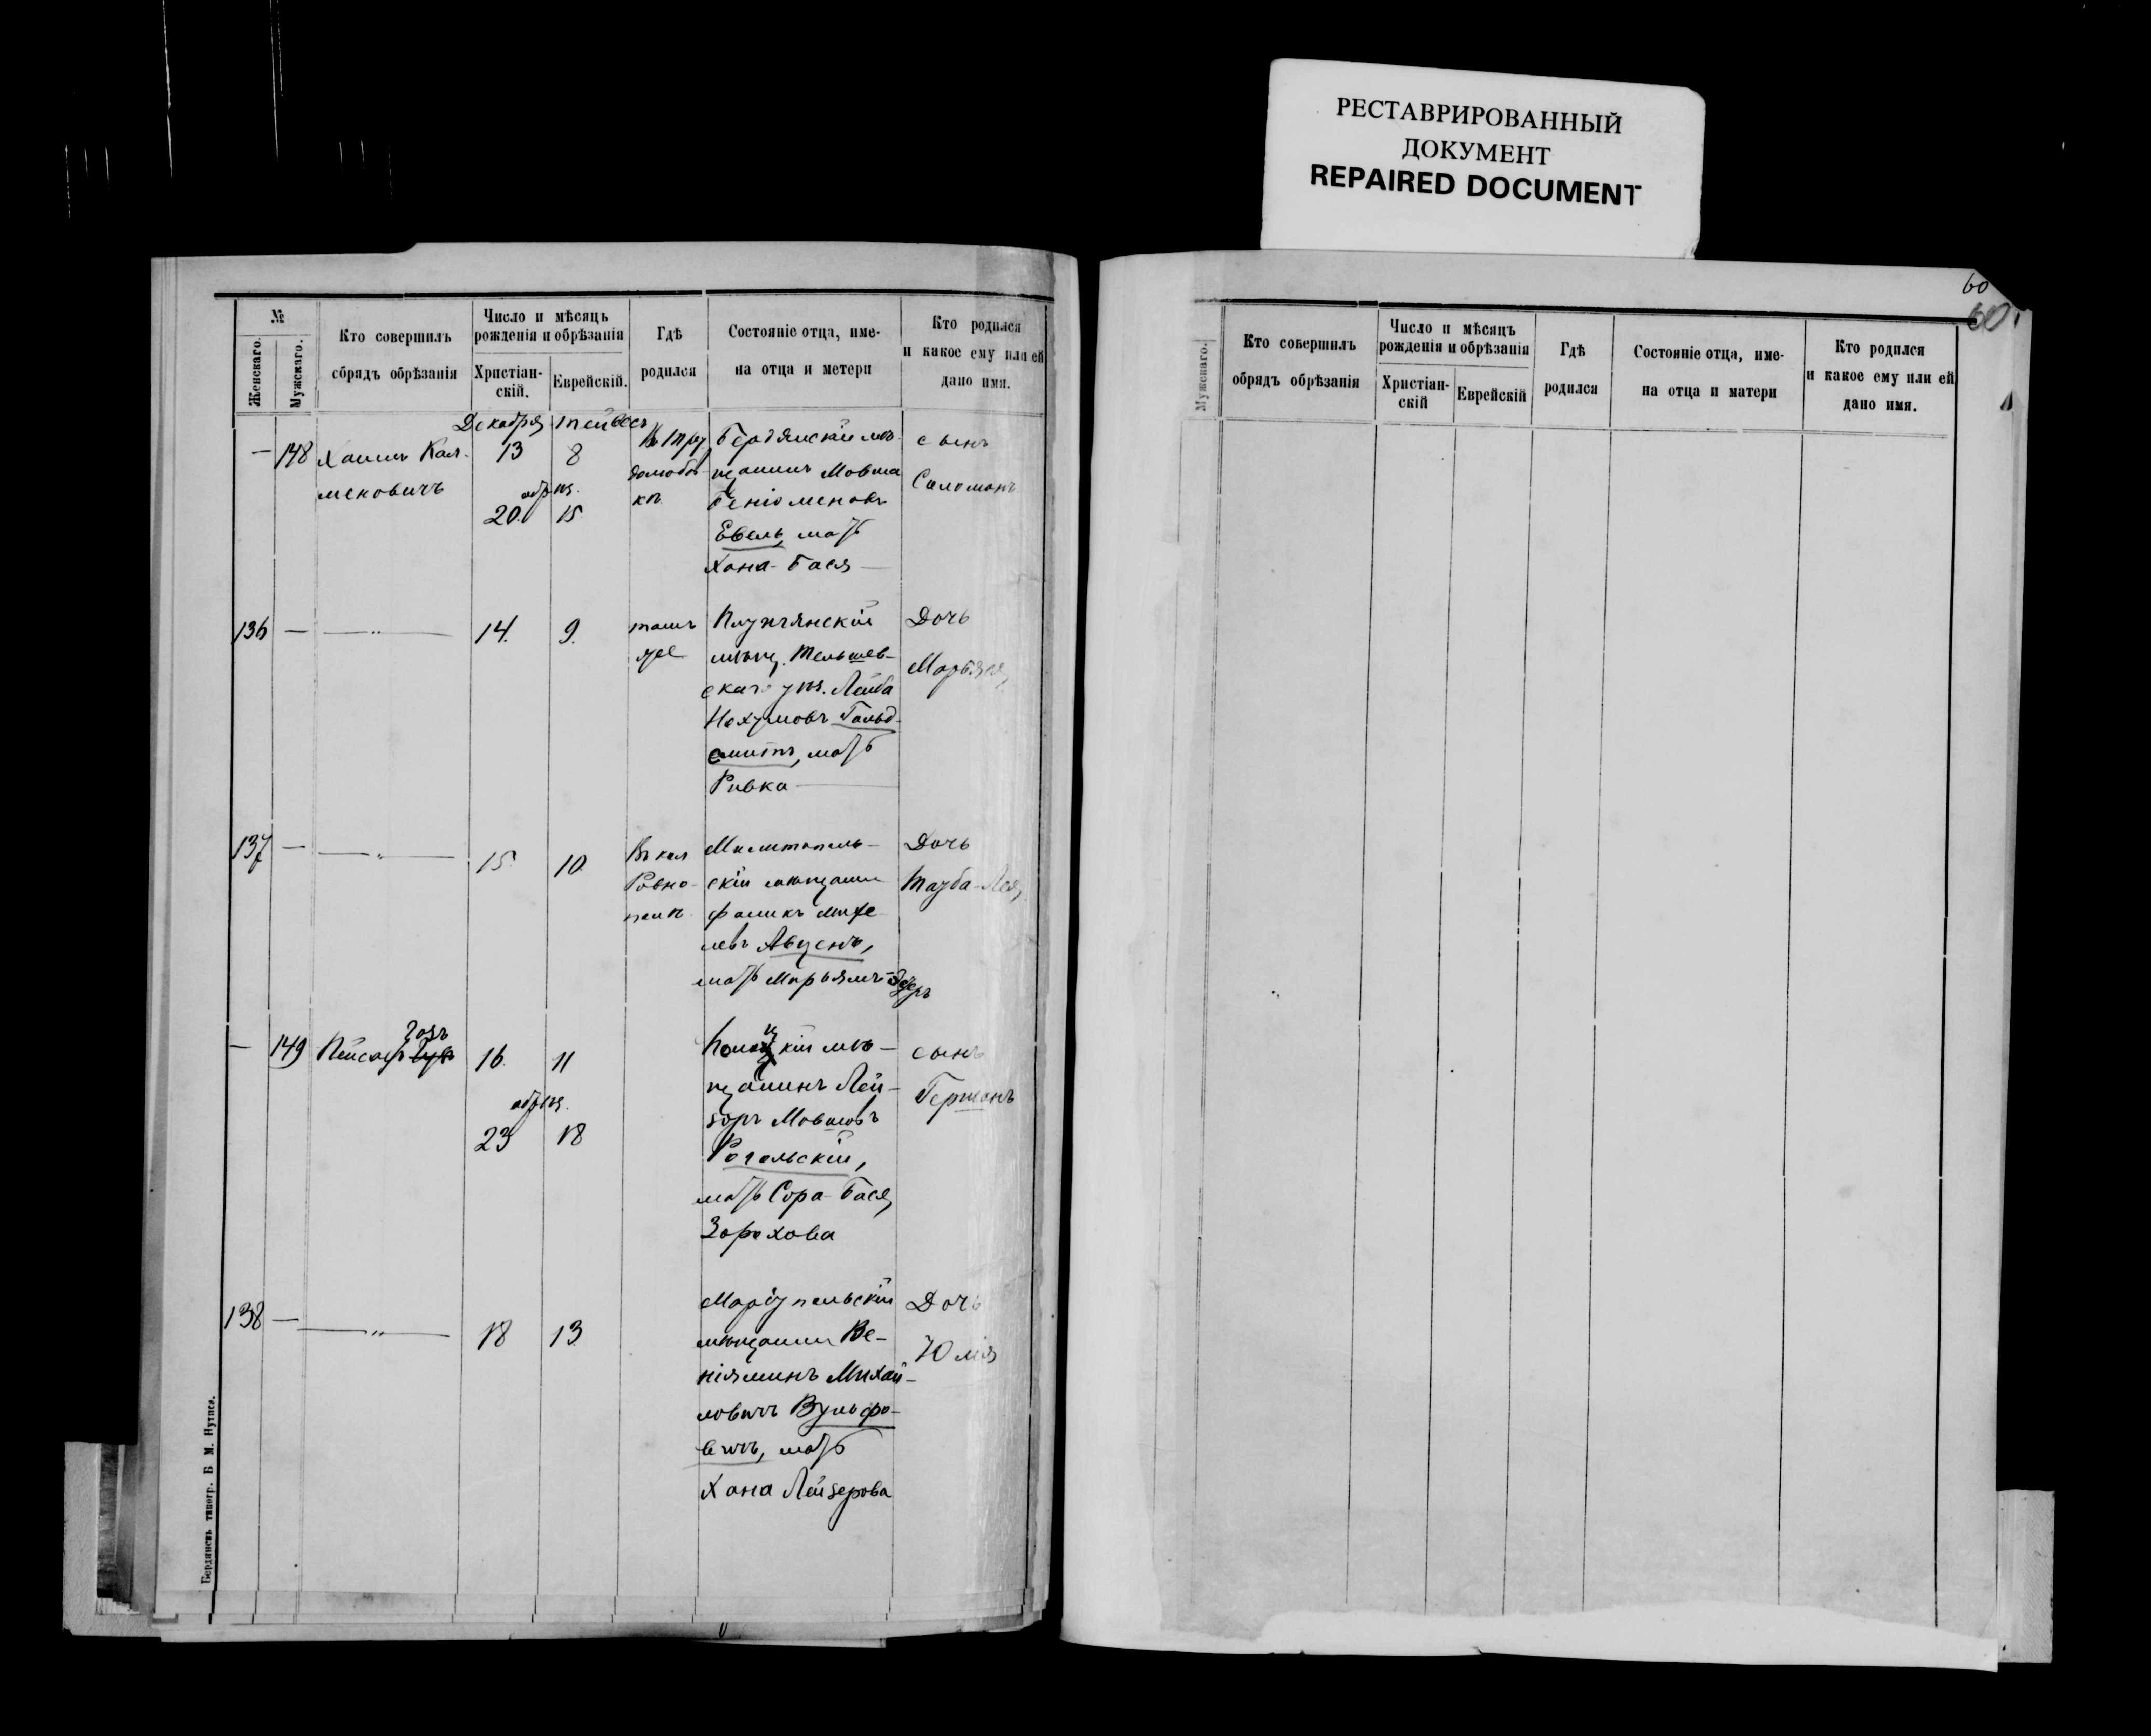 РЕСТАВРИРОВАННЫЙ
ДОКУМЕНТ
REPAIRED DOCUMENT
№
Женскаго.
Мужскаго.
Кто совершилъ
обрядъ обрѣзанія
Число и мѣсяцъ
рожденія и обрѣзанія
Христіан-
скій.
Еврейскій.
Гдѣ
родился
Состояніе отца, име-
на отца и метери
Кто родился
и какое ему или ей
дано имя.
Декабря Тейвесъ
— 148 Хаимъ Кал-
мековичъ
13 8
обрѣз.
20. 15
Бердянскій мѣ-
щанинъ Мовша
Беніоменовъ
Евель, мать
Хана-Бася
сынъ
Саломонъ
136 — —„— 14. 9.
тамъ
же
Плунгянскій
мѣщ. Тельшев-
скаго уѣз. Лейба
Нохумовъ Гольд-
смитъ, мать
Ривка
Дочь
137 — —„— 15 10.
Въ кол
Ровно-
поль
Мелитополь-
скій мѣщанин
Фаликъ
мать Марьямъ-Эстеръ
Дочь
Тауба-Лея
— 149 Пейсахъ
16. 11
обрѣз.
23 18
мѣ-
щанинъ Лей-
зоръ Мовшовъ
Рогальскій,
мать Сора-Бася
Зорохова
сынъ
Германъ
138 — —„— 18 13
Маріупольскій
мѣщанин Ве-
ніяминъ Михай-
ловичъ Вульфо-
вичъ, мать
Хана Лейзерова
Дочь
Юлія
Бердянскъ типогр. Б М. Нутиса.
60
60
Мужскаго.
Кто совершилъ
обрядъ обрѣзанія
Число и мѣсяцъ
рожденія и обрѣзанія
Христіан-
скій
Еврейскій
Гдѣ
родился
Состояніе отца, име-
на отца и матери
Кто родился
и какое ему или ей
дано имя.